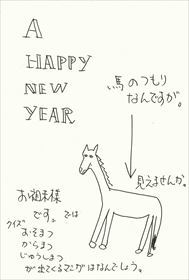 A
HAPPY
NEW
YEAR
馬のつもり
なんですが。
見えませんか。
お粗末様
です。では
クイズ
おそまつ
からまつ
じゅうしまつ
が出てくるマンガはなんでしょう。